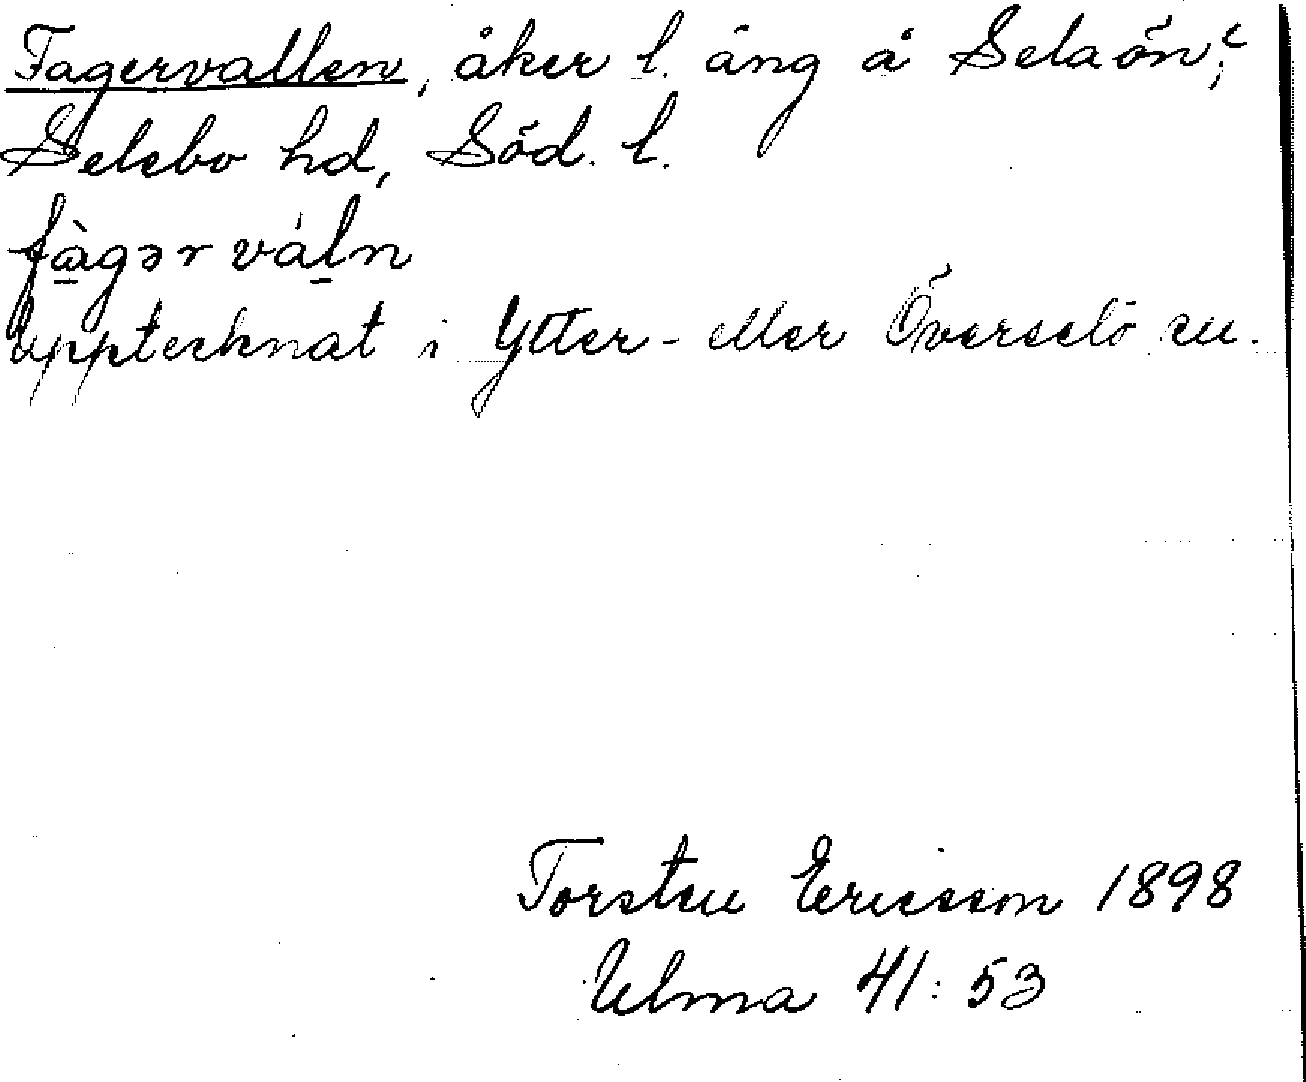 Fagervallen, åker l. äng å Selaön;
Selebo hd, Söd. l.
fàgər váln
Upptecknat i Ytter- eller Överselö sn.
Torsten Ericsson 1898
Ulma 41:53